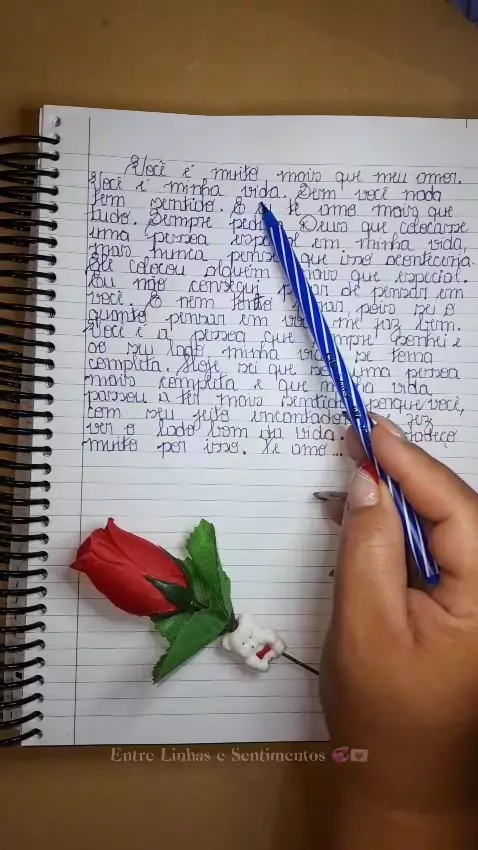 Você é muito mais que meu amor.
Você é minha vida. Sem você nada
tem sentido. E te amo mais que
tudo. Sempre Deus que colocasse
uma pessoa em minha vida,
mais nunca que isso aconteceria.
Ele colocou alguém mais que especial.
Eu não consegui de pensar em
você. E nem tento pois sei o
quanto pensar em me faz bem.
Você é a pessoa que sonhei e
ao seu lado minha se torna
completa. Hoje sei que uma pessoa
mais completa e que minha vida
passou a ter mais porque você,
com seu jeito encantador fez
ver o lado bom da vida.
muito por isso. Te amo...
Entre Linhas e Sentimentos 💞💌